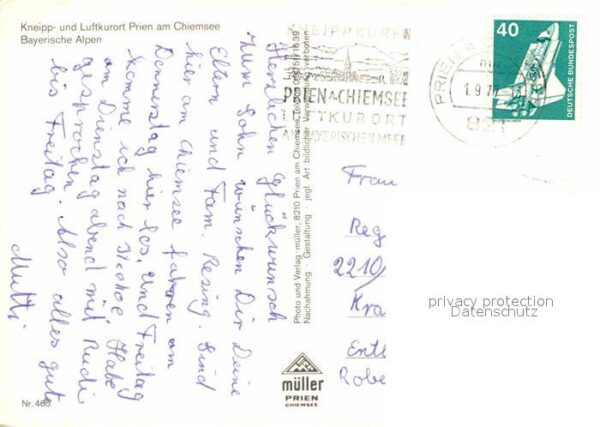 Kneipp- und Luftkurort Prien am Chiemsee
Bayerische Alpen
Herzlichen Glückwunsch
zum Sohn wünschen Dir Deine
Eltern und Fam. Resing. Sind
hier am Chiemsee fahren am
Donnerstag hier los, und Freitag
komme ich nach Itzehoe. Habe
am Dienstag abend mit Rudi
gesprochen. Also alles gute
bis Freitag.
Mutti
Photo und Verlag müller, 8210 Prien am Chiemsee
Nachahmung Gestaltung jegl. Art bildlicher verboten
KNEIPPKUREN
PRIEN A CHIEMSEE
LUFTKURORT
AM BAYERISCHEN MEER
PRIEN a
1.9.77
821
40
DEUTSCHE BUNDESPOST
Frau
Reg
2210
Kra
Entl
Robe
privacy protection
Datenschutz
müller
PRIEN
CHIEMSEE
Nr. 468